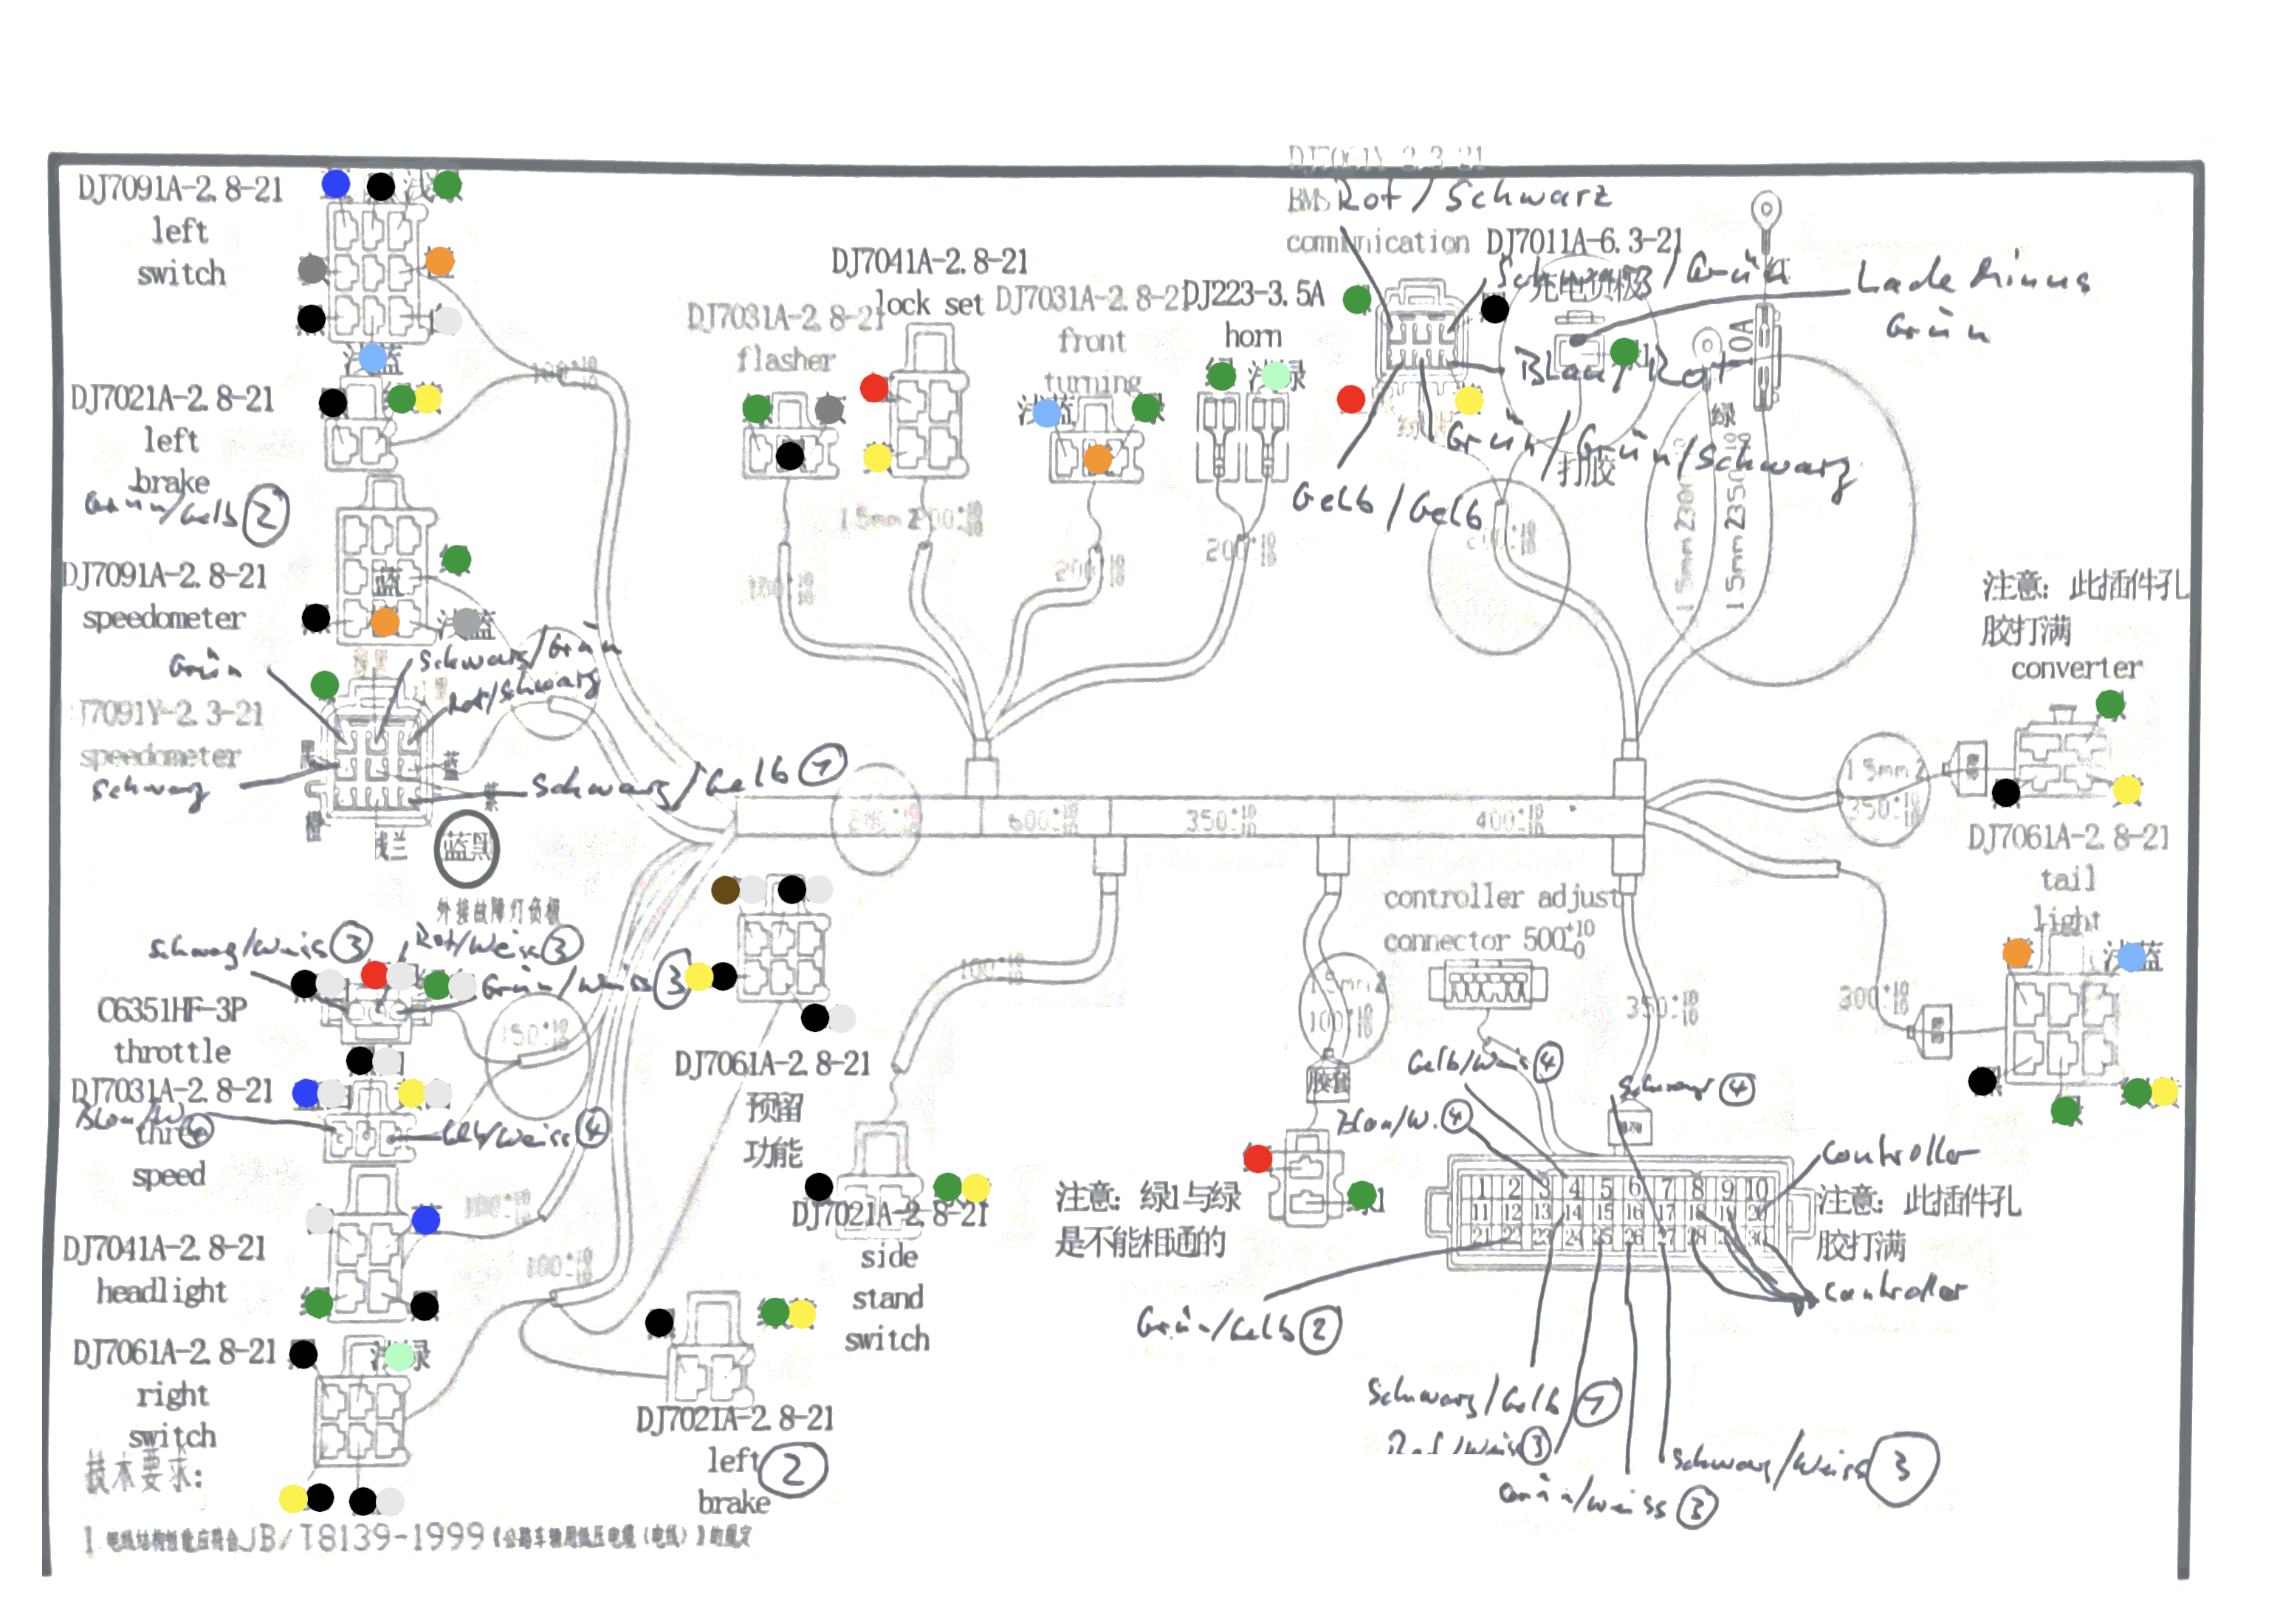 DJ7091A-2.8-21
left
switch
浅
浅蓝
DJ7021A-2.8-21
left
brake
Grün/Gelb ②
DJ7091A-2.8-21
speedometer
蓝
浅蓝
Grün
Schwarz/Grün
Rot/Schwarz
7091Y-2.3-21
speedometer
黑
蓝
紫
橙
Schwarz
Schwarz/Gelb ①
浅兰
蓝黑
外接故障灯负极
Schwarz/Weiss ③
Rot/Weiss ③
Grün/Weiss ③
C6351HF-3P
throttle
DJ7031A-2.8-21
Blau/W ④
speed
Gelb/Weiss ④
DJ7041A-2.8-21
headlight
DJ7061A-2.8-21
right
switch
浅绿
技术要求:
1 电线结构性能应符合JB/T8139-1999《公路车辆用低压电缆(电线)》的规定
DJ7031A-2.8-21
flasher
DJ7041A-2.8-21
lock set
DJ7031A-2.8-21
front
turning
浅蓝
绿
DJ223-3.5A
horn
绿
浅绿
DJ7061Y-2.3-21
BMS
Rot/Schwarz
communication
DJ7011A-6.3-21
Schwarz/Grün
充电负极
红
Lade Minus
Grün
10A
Blau/Rot
绿
Grün/Grün/Schwarz
打胶
Gelb/Gelb
1.5mm2 200±10
100±10
180±10
200±10
200±10
1.5mm2 230
1.5mm2 235
注意: 此插件孔
胶打满
converter
1.5mm2
350±10
DJ7061A-2.8-21
tail
light
浅蓝
300±10
600±10
350±10
400±10
150±10
100±10
100±10
DJ7061A-2.8-21
预留
功能
100±10
DJ7021A-2.8-21
side
stand
switch
DJ7021A-2.8-21
left ②
brake
1.5mm2
100±10
胶套
注意: 绿1与绿
是不能相通的
controller adjust
connector 500+10 -0
350±10
Gelb/Weiss ④
Blau/W. ④
Schwarz ④
1 2 3 4 5 6 7 8 9 10
11 12 13 14 15 16 17 18 19 20
21 22 23 24 25 26 27 28 29 30
Controller
注意: 此插件孔
胶打满
Controller
Grün/Gelb ②
Schwarz/Gelb ①
Rot/Weiss ③
Grün/Weiss ③
Schwarz/Weiss ③